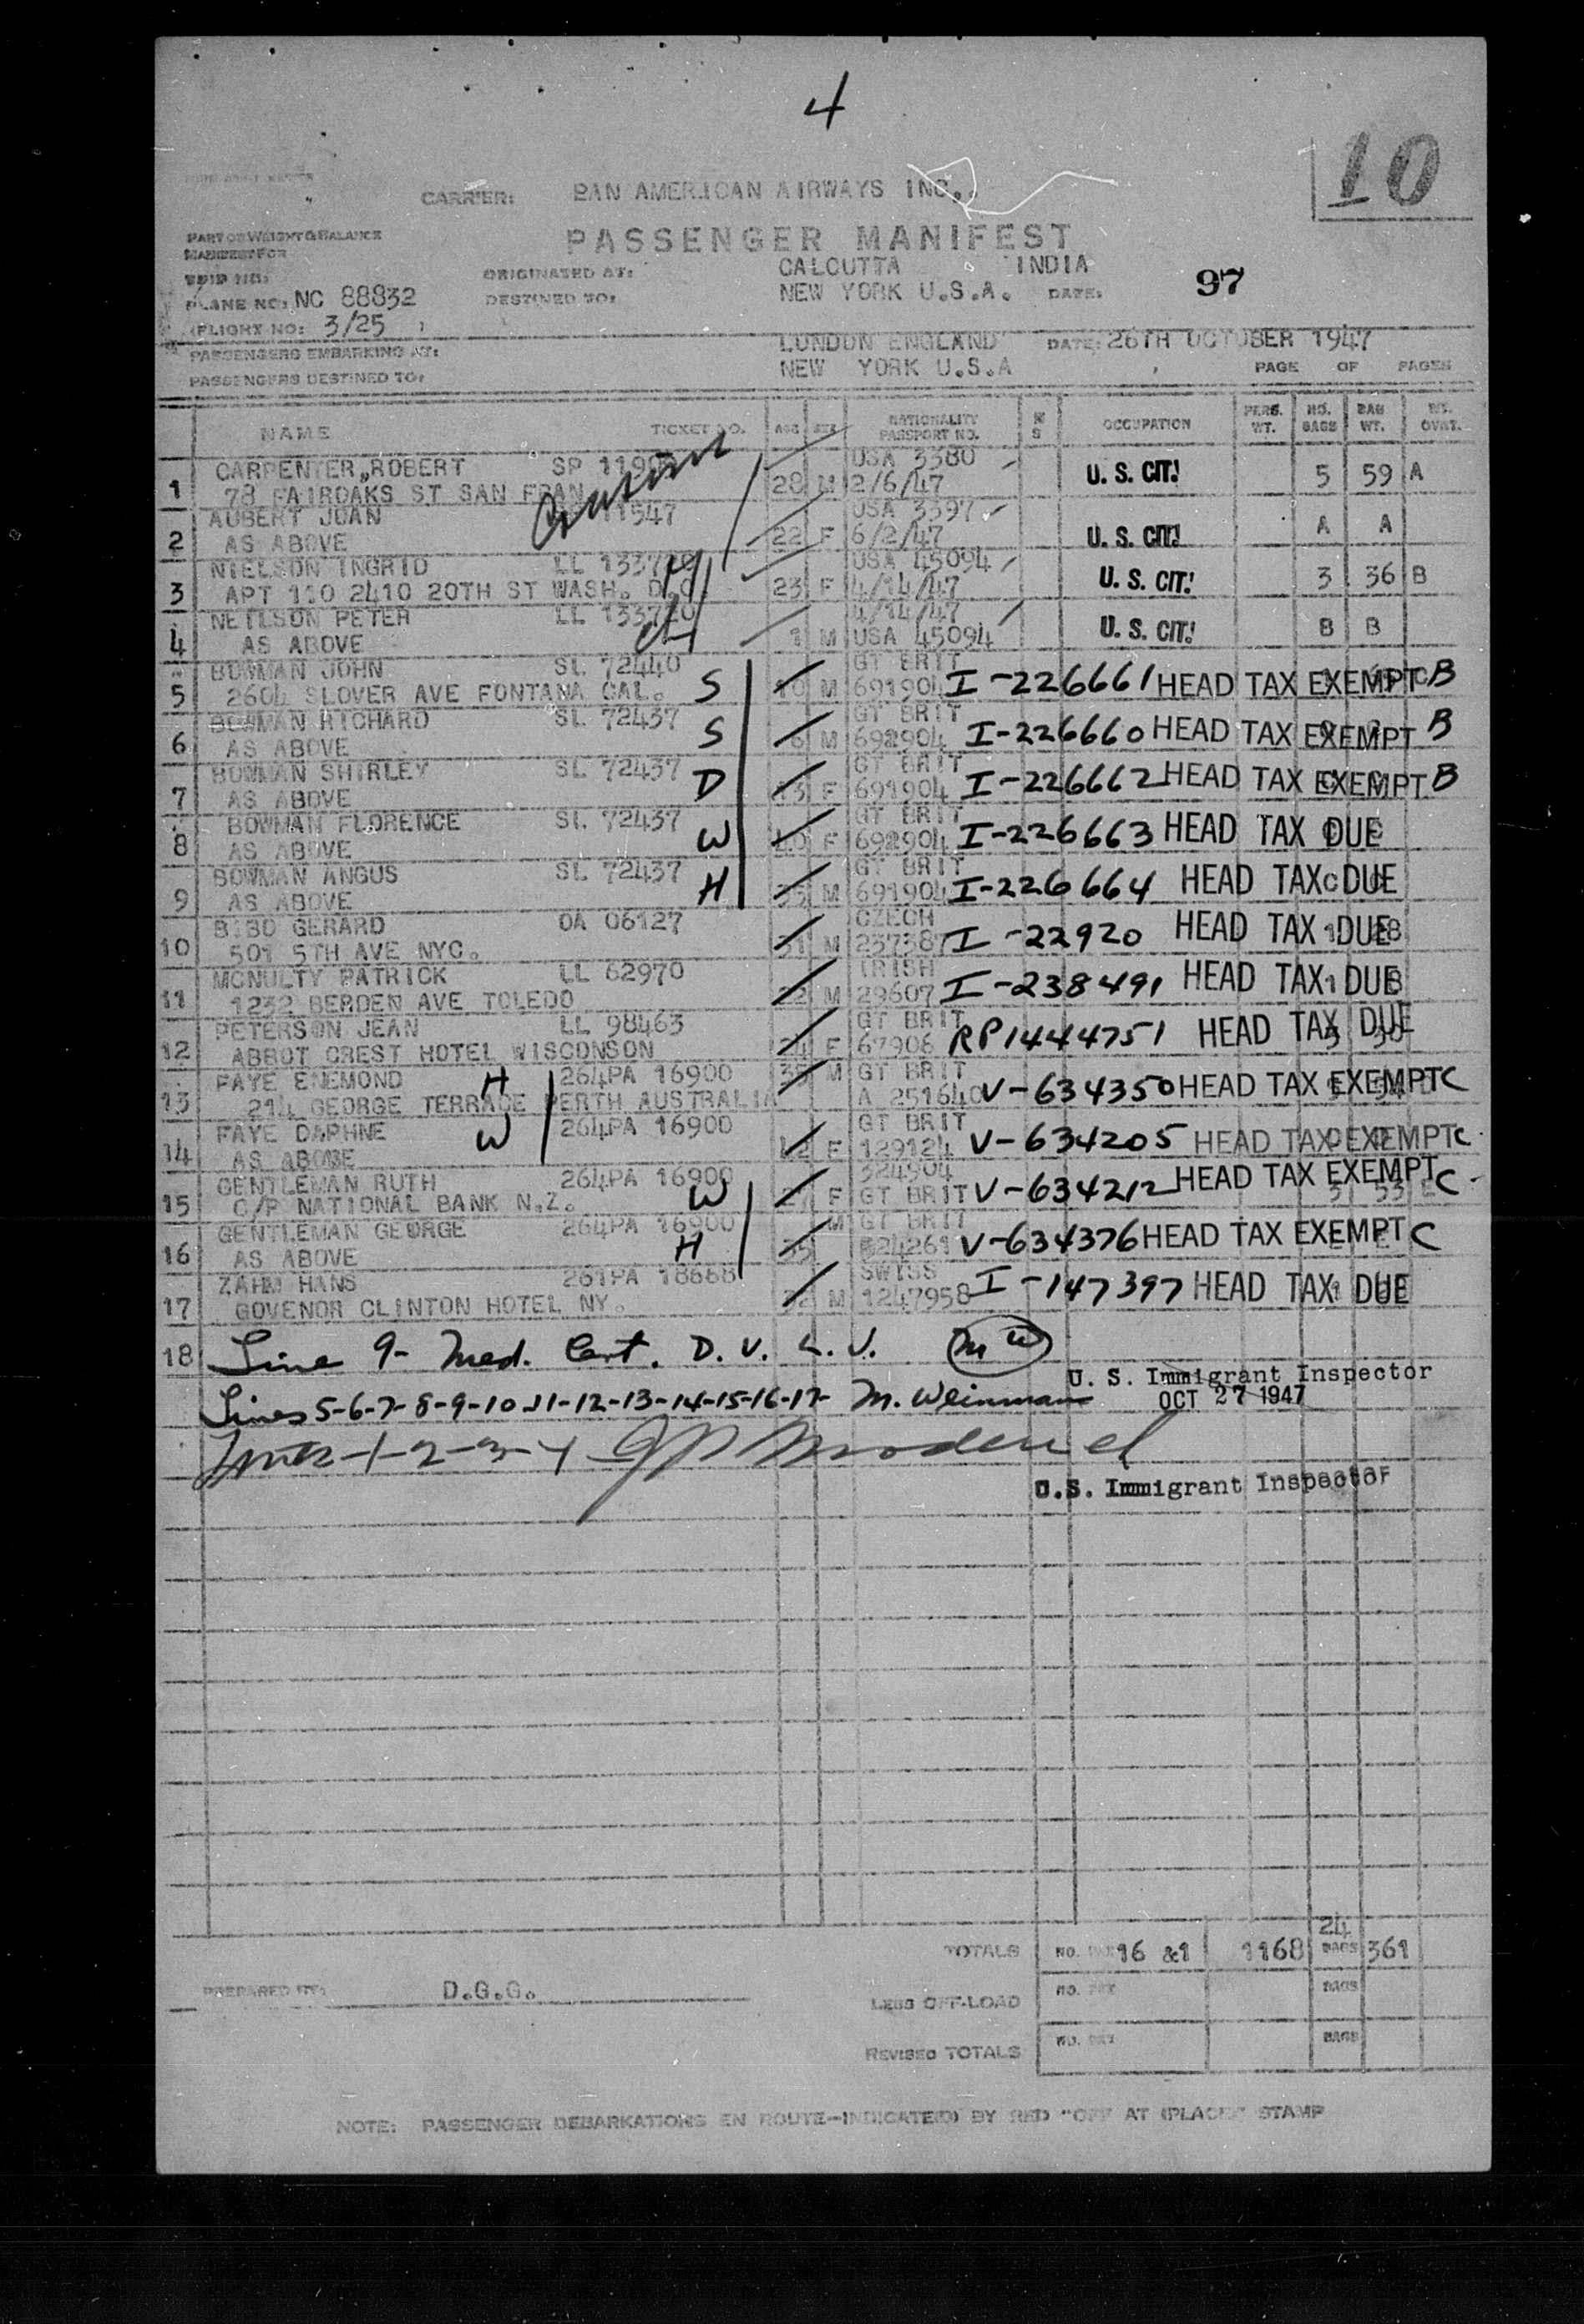 4
10
CARRIER: PAN AMERICAN AIRWAYS INC.
PASSENGER MANIFEST
PART OF WEIGHT & BALANCE
MANIFEST FOR
TRIP NO:
ORIGINATED AT: CALCUTTA INDIA
PLANE NO: NC 88832
DESTINED TO: NEW YORK U.S.A. DATE: 97
(FLIGHT NO: 3/25 )
PASSENGERS EMBARKING AT: LONDON ENGLAND DATE: 26TH OCTOBER 1947
PASSENGERS DESTINED TO: NEW YORK U.S.A PAGE OF PAGES
NAME TICKET NO. AGE SEX NATIONALITY PASSPORT NO. M S OCCUPATION PERS. WT. NO. BAGS BAG WT.
CARPENTER,ROBERT SP USA 3380
1 78 FAIROAKS ST SAN FRAN 28 M 2/6/47 U. S. CIT. 5 59 A
AUBERT JOAN 11547 USA 3397
2 AS ABOVE 22 F 6/2/47 U. S. CIT. A A
NIELSON INGRID LL USA 45094
3 APT 110 2410 20TH ST WASH. D.C. 23 F 4/14/47 U. S. CIT. 3 36 B
NEILSON PETER LL 133720 4/14/47
4 AS ABOVE 1 M USA 45094 U. S. CIT. B B
BOWMAN JOHN SL 72440 GT BRIT
5 2604 SLOVER AVE FONTANA CAL. S 10 M 691904 I-226661 HEAD TAX EXEMPT B
BOWMAN RICHARD SL 72437 GT BRIT
6 AS ABOVE S 6 M 692904 I-226660 HEAD TAX EXEMPT B
BOWMAN SHIRLEY SL 72437 GT BRIT
7 AS ABOVE D 13 F 691904 I-226662 HEAD TAX EXEMPT B
BOWMAN FLORENCE SL 72437 GT BRIT
8 AS ABOVE W F 692904 I-226663 HEAD TAX DUE
BOWMAN ANGUS SL 72437 GT BRIT
9 AS ABOVE H M 691904 I-226664 HEAD TAX DUE
BIBO GERARD OA 06127 CZECH
10 501 5TH AVE NYC. 31 M 237387 I-22920 HEAD TAX DUE
MCNULTY PATRICK LL 62970 IRISH
11 1232 BERDEN AVE TOLEDO 22 M 29607 I-238491 HEAD TAX DUE
PETERSON JEAN LL 98463 GT BRIT
12 ABBOT CREST HOTEL WISCONSON F 67906 RP1444751 HEAD TAX DUE
FAYE ENEMOND H 264PA 16900 35 M GT BRIT
13 214 GEORGE TERRACE PERTH AUSTRALIA A 251640 V-634350 HEAD TAX EXEMPT C
FAYE DAPHNE W 264PA 16900 GT BRIT
14 AS ABOVE F 129124 V-634205 HEAD TAX EXEMPT C
GENTLEMAN RUTH 264PA 16900 324904
15 C/P NATIONAL BANK N.Z. W 27 F GT BRIT V-634212 HEAD TAX EXEMPT C
GENTLEMAN GEORGE 264PA 16900 M GT BRIT
16 AS ABOVE H 35 324261 V-634376 HEAD TAX EXEMPT C
ZAHM HANS 261PA 18668 SWISS
17 GOVENOR CLINTON HOTEL NY. M 1247958 I-147397 HEAD TAX DUE
18 Line 9- Med. Cert. D. V. L. V. MW
U. S. Immigrant Inspector
Lines 5-6-7-8-9-10-11-12-13-14-15-16-17- M. Weinman OCT 27 1947
Lines 1-2-3-4
U.S. Immigrant Inspector
24
TOTALS NO. PAX 16 &1 1168 BAGS 361
PREPARED BY: D.G.G.
LESS OFF-LOAD NO. PAX BAGS
REVISED TOTALS NO. PAX BAGS
NOTE: PASSENGER DEBARKATIONS EN ROUTE-INDICATED BY RED "OFF AT (PLACE)" STAMP